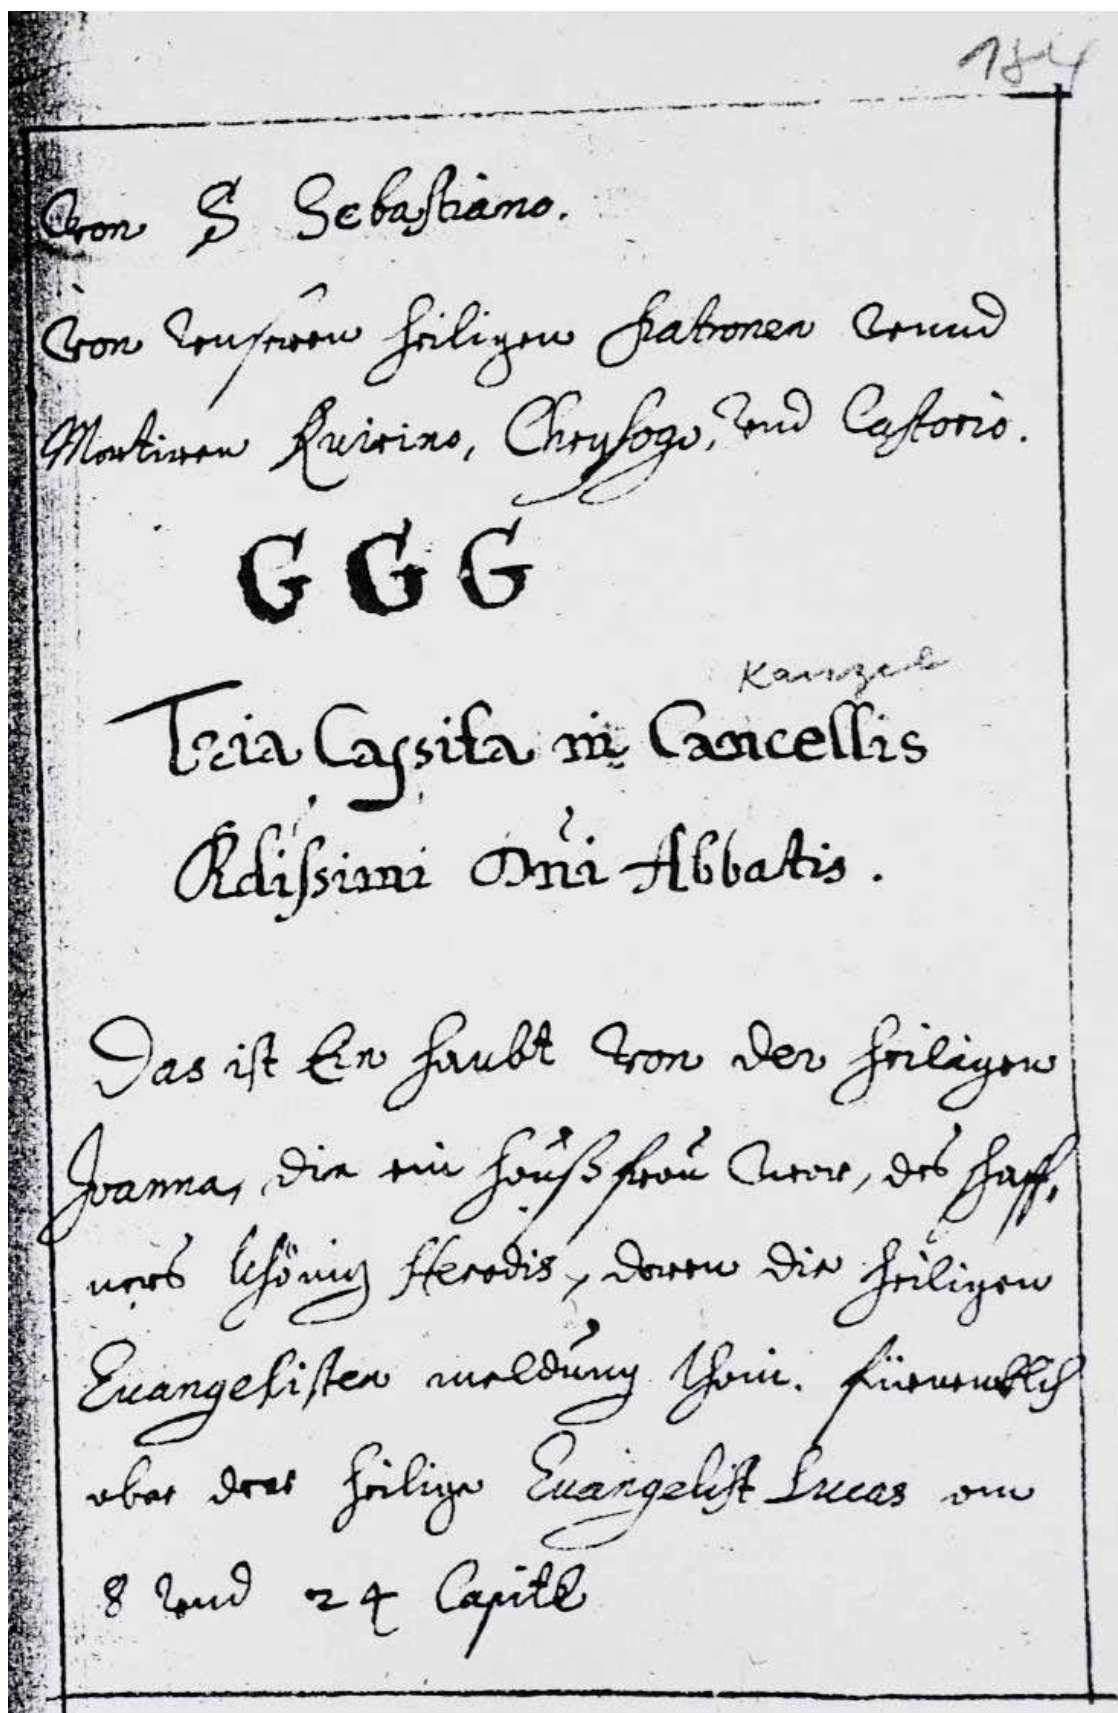 184
Von S Sebastiano.
Von vnseren heiligen Patronen vnnd
Martiren Quirino, Chrysogo, vnd Castorio.
G G G
Kanzel
Tria Capsita in Cancellis
Rdissimi Dni Abbatis.
Das ist Ein haubt von der heiligen
Joanna, die ein haußfrau war, des schaff,
ners khönig Herodis, deren die heiligen
Euangelisten meldung thain. fürnemblich
aber der heilige Euangelist Lucas am
8 vnd 24 Capitl